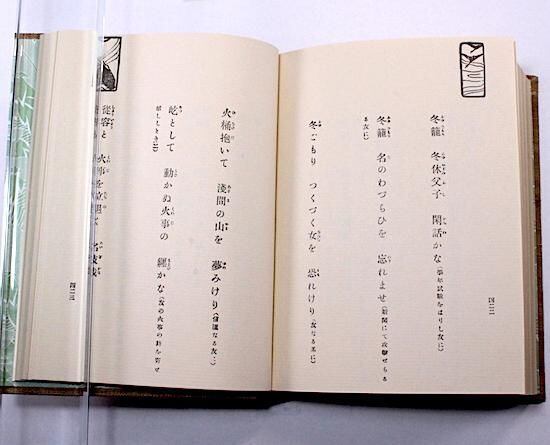 冬籠 冬休父子 閑話かな(學年試驗をはりし友に)
冬籠 名のわづらひを 忘れませ(新聞にて攻擊せらる
る友に)
冬ごもり つくづく女を 恐れけり(友なる某に)
四二二
火桶抱いて 淺間の山を 夢みけり(信濃なる友に)
屹として 動かぬ火事の 纒かな(友の火事の詩を寄せ
越しゝときに)
從容と 火事を
四二三